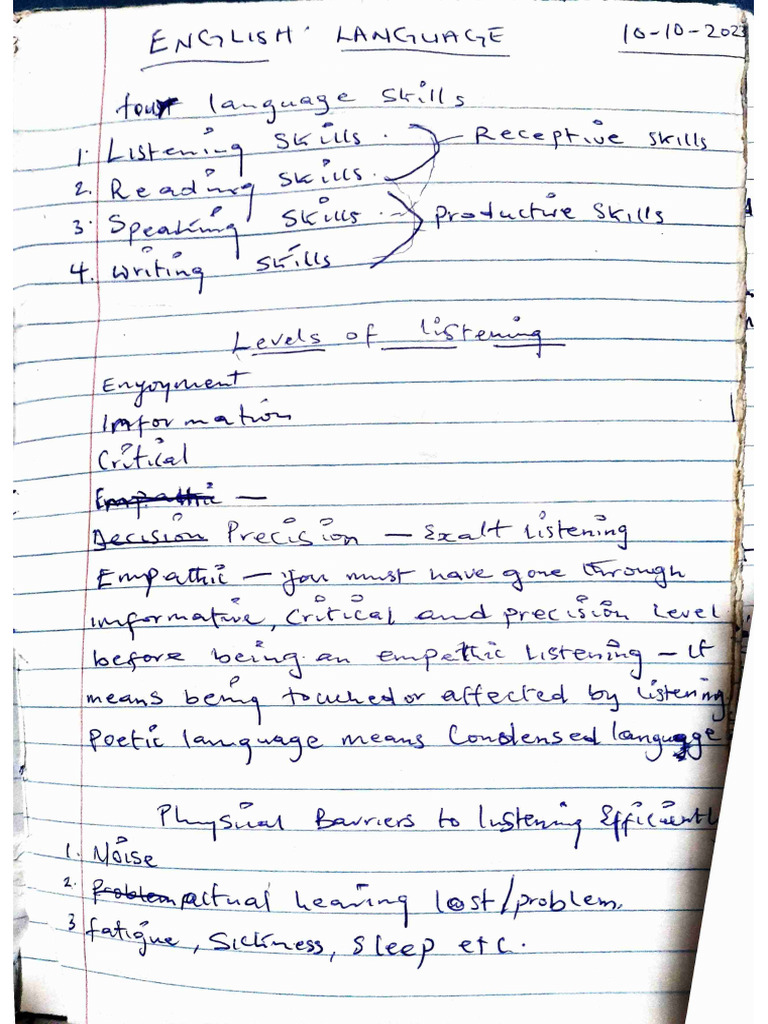 ENGLISH LANGUAGE 10-10-2023
four language skills
1. Listening skills. Receptive skills
2. Reading skills.
3. Speaking skills. Productive skills
4. Writing skills
Levels of listening
Enyoyment
Information
Critical
Empathic —
Decision Precision — Exalt listening
Empathic — You must have gone through
informative, critical and precision level
before being an empathic listening – it
means being touched or affected by listening
Poetic language means Condensed language
Physical Barriers to listening Efficiently
1. Noise
2. Problem actual hearing lost/problem.
3 fatigue, sickness, sleep etc.